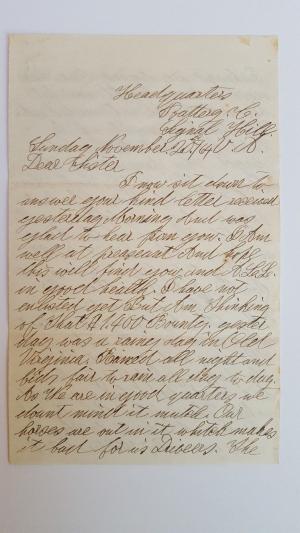 Headquarters
Battery C.
Signal Hill
Sunday November 20th/64 VA.
Dear Sister
I now sit down to
answer your kind letter received
yesterday Morning And was
glad to hear from you. I Am
well at preasent And hope
this will find you and
in good health. I have not
enlisted yet But Am thinking
of that $1,400 Bounty. yester
day was a rainy day in Old
Virginia. Rained all night and
bids fair to rain all day to day.
As the are in good quarters we
dount mind it mutch. Our
horses are out in it whitch makes
it bad for us Drivers. The